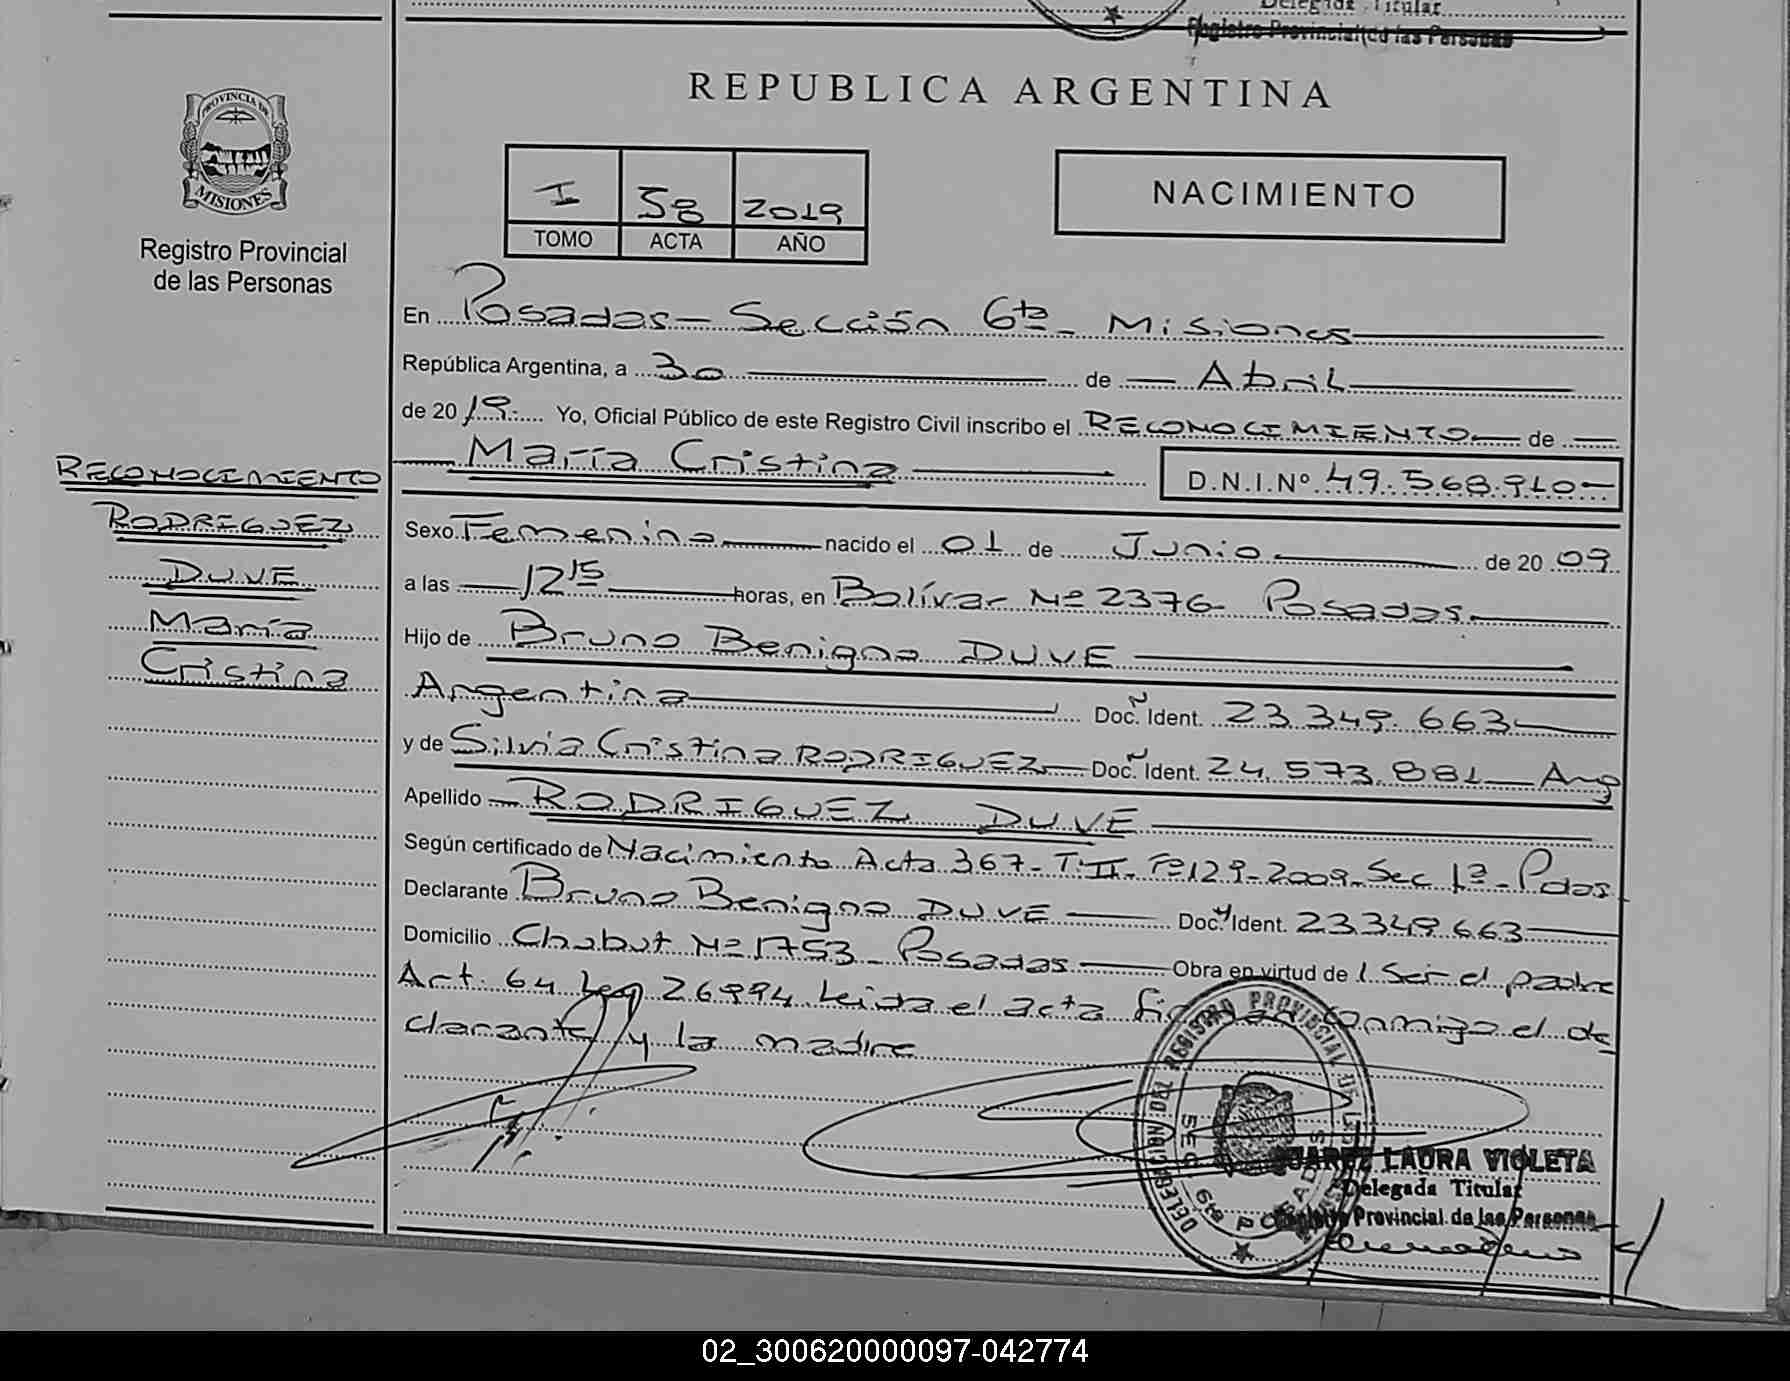 Delegada Titular
Registro Provincial de las Personas
REPUBLICA ARGENTINA
PROVINCIA DE
MISIONES
Registro Provincial
de las Personas
I 58 2019
TOMO ACTA AÑO
NACIMIENTO
En Posadas - Sección 6ta - Misiones
República Argentina, a 30 de Abril
de 2019. Yo, Oficial Público de este Registro Civil inscribo el RECONOCIMIENTO de
María Cristina
D.N.I.Nº 49.568.910-
RECONOCIMIENTO
RODRIGUEZ
DUVE
María
Cristina
Sexo Femenino nacido el 01 de Junio de 2009
a las 12 15 horas, en Bolívar Nº 2376 Posadas
Hijo de Bruno Benigno DUVE
Argentina Doc. Ident. 23.349.663
y de Silvia Cristina RODRIGUEZ Doc. Ident. 24.573.881 - Arg
Apellido RODRIGUEZ DUVE
Según certificado de Nacimiento Acta 367 - T:II - Fº 129 - 2009 - Sec 1ª - Pdas
Declarante Bruno Benigno DUVE Doc. Ident. 23349663
Domicilio Chubut Nº 1753 - Posadas Obra en virtud de Ser el padre
Art. 64 Ley 26994 Leida el acta conmigo el de
clarante y la madre
DELEGACION DEL REGISTRO PROVINCIAL DE LAS
SEC 6ta POSADAS
JUAREZ LAURA VIOLETA
Delegada Titular
Registro Provincial de las Personas
02_300620000097-042774